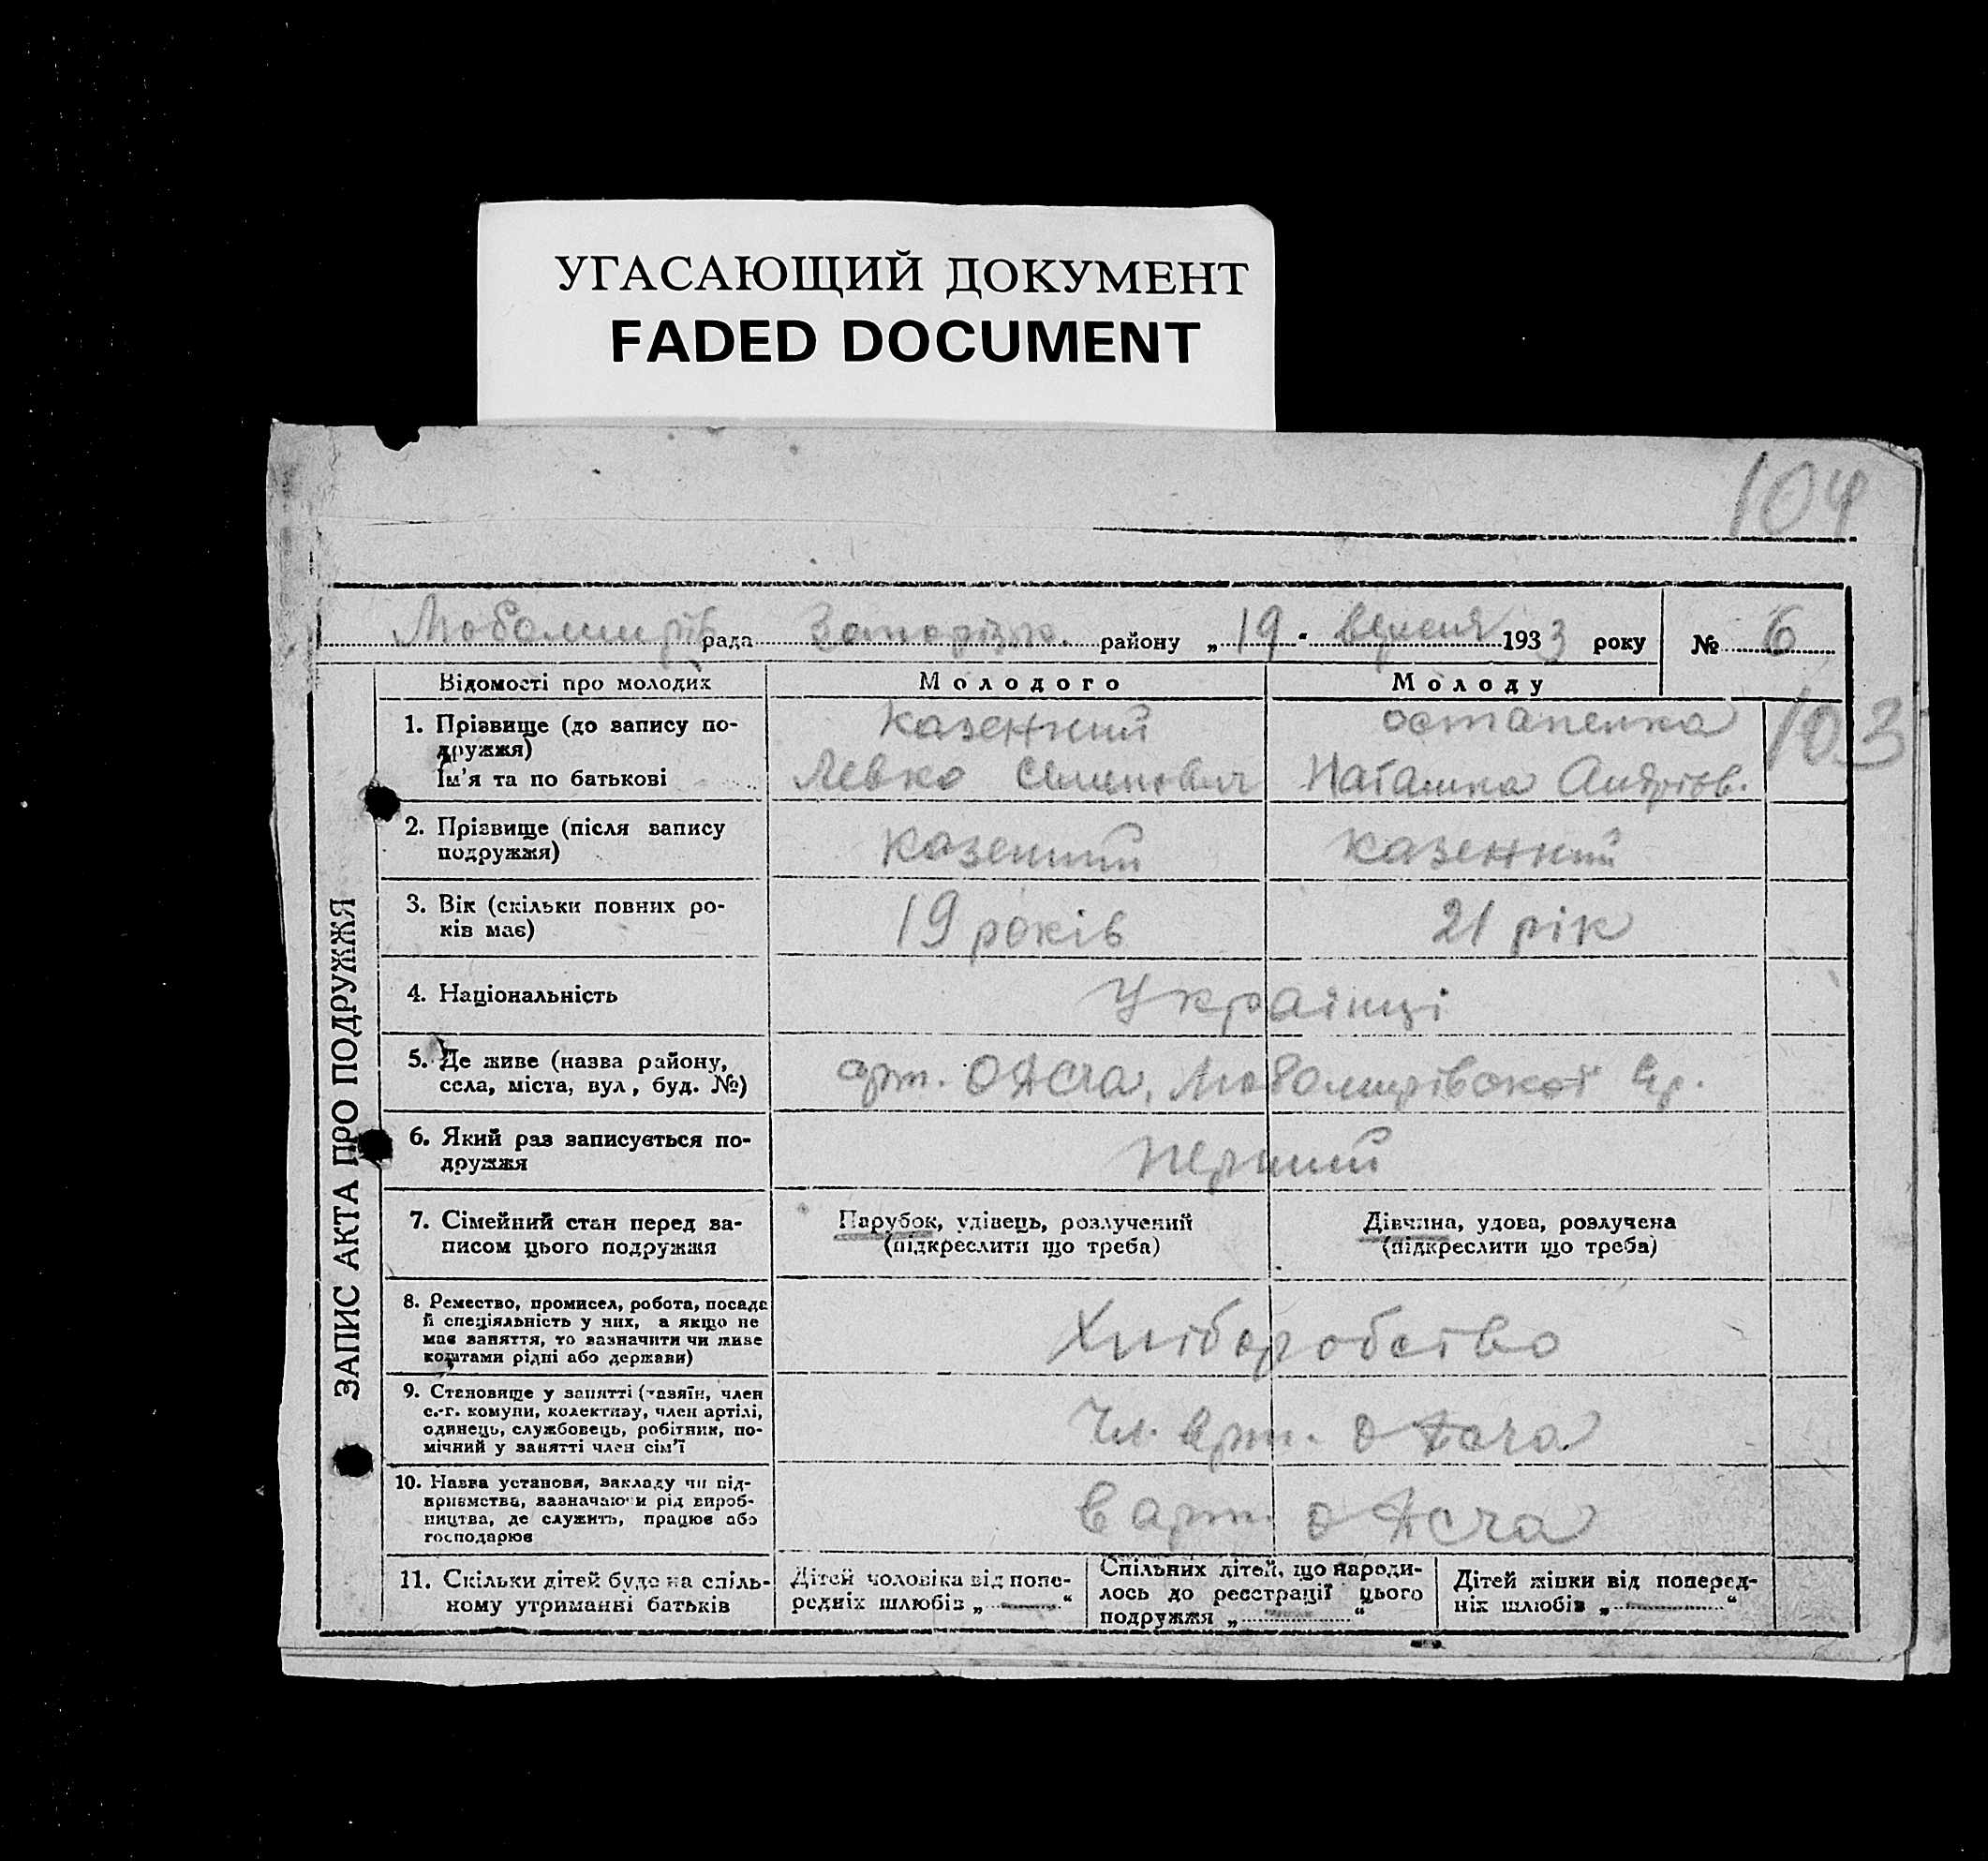 УГАСАЮЩИЙ ДОКУМЕНТ
FADED DOCUMENT
104
рада Запорізьк. району „ 19 " вересня 1933 року № 6
Відомості про молодих Молодого Молоду
103
1. Прізвище (до запису по-
дружжя)
казенний остапенка
Ім'я та по батькові Левко Семенович Наташка Андріов.
2. Прізвище (після запису
подружжя)
казенний казенний
3. Вік (скільки повних ро-
ків має)
19 років 21 рік
4. Національність Українці
5. Де живе (назва району,
села, міста, вул, буд. №)
арт.
6. Який раз записується по-
дружжя
перший
7. Сімейний стан перед за-
писом цього подружжя
Парубок, удівець, розлучений
(підкреслити що треба)
Дівчина, удова, розлучена
(підкреслити що треба)
8. Ремество, промисел, робота, посада
й спеціяльність у них, а якщо не
має заняття, то зазначити чи живе
коштами рідні або держави)
Хліборобство
9. Становище у занятті (хазяїн, член
с.-г. комуни, колективу, член артілі,
одинець, службовець, робітник, по-
мічний у занятті член сім'ї
Чл. арт.
10. Назва установи, закладу чи під-
приємства, зазначаючи рід вироб-
ництва, де служить, працює або
господарює
в арт.
11. Скільки дітей буде на спіль-
ному утриманні батьків
Дітей чоловіка від попе-
редніх шлюбів „ — "
Спільних дітей, що народи-
лось до реєстрації цього
подружжя „ — "
Дітей жінки від поперед-
ніх шлюбів „ — "
ЗАПИС АКТА ПРО ПОДРУЖЖЯ